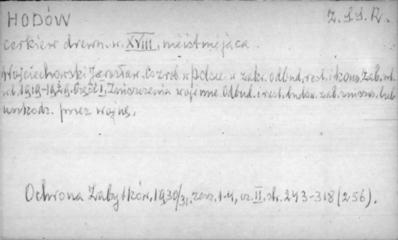 HODÓW Z.S.S.R.
cerkiew drewn. w. XVIII, nieistniejąca.
Wojciechowski Jarosław. Co zrob. w Polsce w zakr. odbud., rest. i kons. zab. w l. 1919-1929. Część I, Zniszczenia wojenne. Odbud. i rest. budow. zab. zniszcz. lub
uszkodz. przez wojnę.
Ochrona Zabytków, 1930/31, zesz. 1-4, cz. II. str. 243-318 (256).